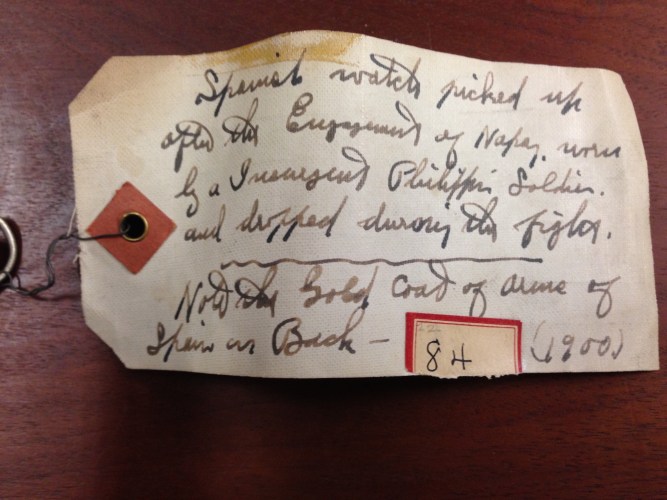 Spanish watch picked up
after the Engagement of Napaz. worn
by a Insurgent Philippin Soldier.
and dropped during the fight.
Note the Gold Coat of arms of
Spain on Back —
84
(1900)